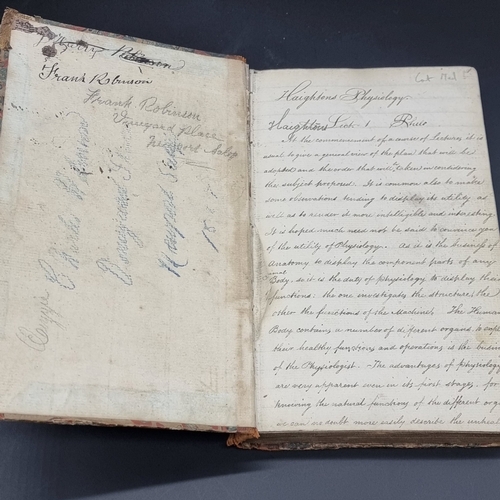 Harry Robinson.
Frank Robinson
Frank Robinson
Vineyard Place
Newport Salop
Charles Robinson
Vineyard
Newport Salop
Haighton's Physiology.
Haightons Lect. 1
At the commencement of a course of lectures it is
usual to give a general view of the plan that will be
adopted and the order that will be taken in considering
the subject proposed. It is common also to make
some observations tending to display its utility as
well as to render it more intelligible and interesting.
It is hoped much need not be said to convince you
of the utility of Physiology. As it is the business of
Anatomy to display the component parts of any
Body, so it is the duty of physiology to display their
functions: the one investigates the structure, the
other the functions of the Machine. The Human
Body contains a number of different organs to explain
their healthy functions and operations is the business
of the Physiologist. The advantages of physiology
are very apparent even in its first stages. for
knowing the natural functions of the different organs
we can no doubt more easily describe the